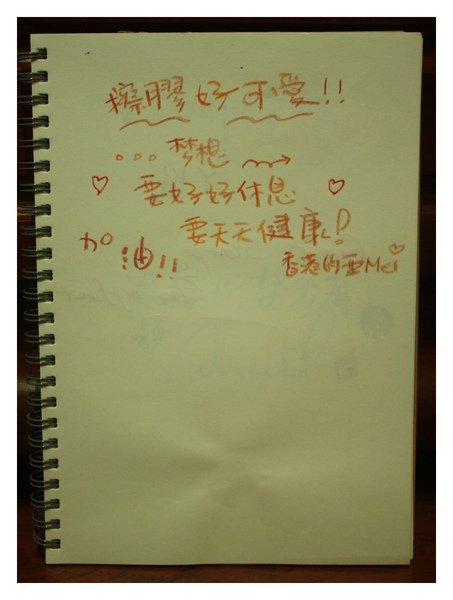 擦膠好可愛!!
。。。梦想
要好好休息
要天天健康!
加油!!
香港的亞Mei